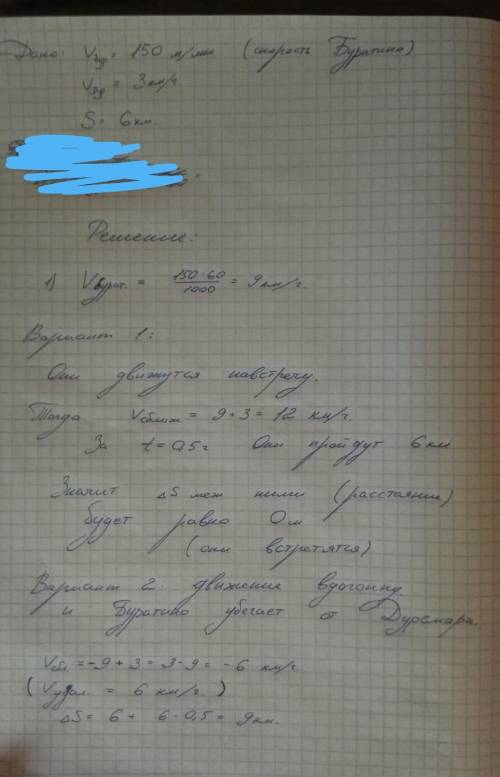 Дано: Vбур = 150 м/мин (скорость Буратино)
Vдур = 3 км/ч
S = 6 км.
Решение:
1) Vбурат. = 150·60/1000 = 9 км/ч.
Вариант 1:
Они движутся навстречу.
Тогда Vсближ = 9 + 3 = 12 км/ч.
За t = 0,5 ч Они пройдут 6 км
Значит ΔS меж ними (расстояние)
будет равно 0 м
(они встретятся)
Вариант 2: движение вдогонку
и Буратино убегает от Дуремара.
Vсбл. = -9 + 3 = 3 - 9 = -6 км/ч.
(Vудал. = 6 км/ч.)
ΔS = 6 + 6·0,5 = 9 км.